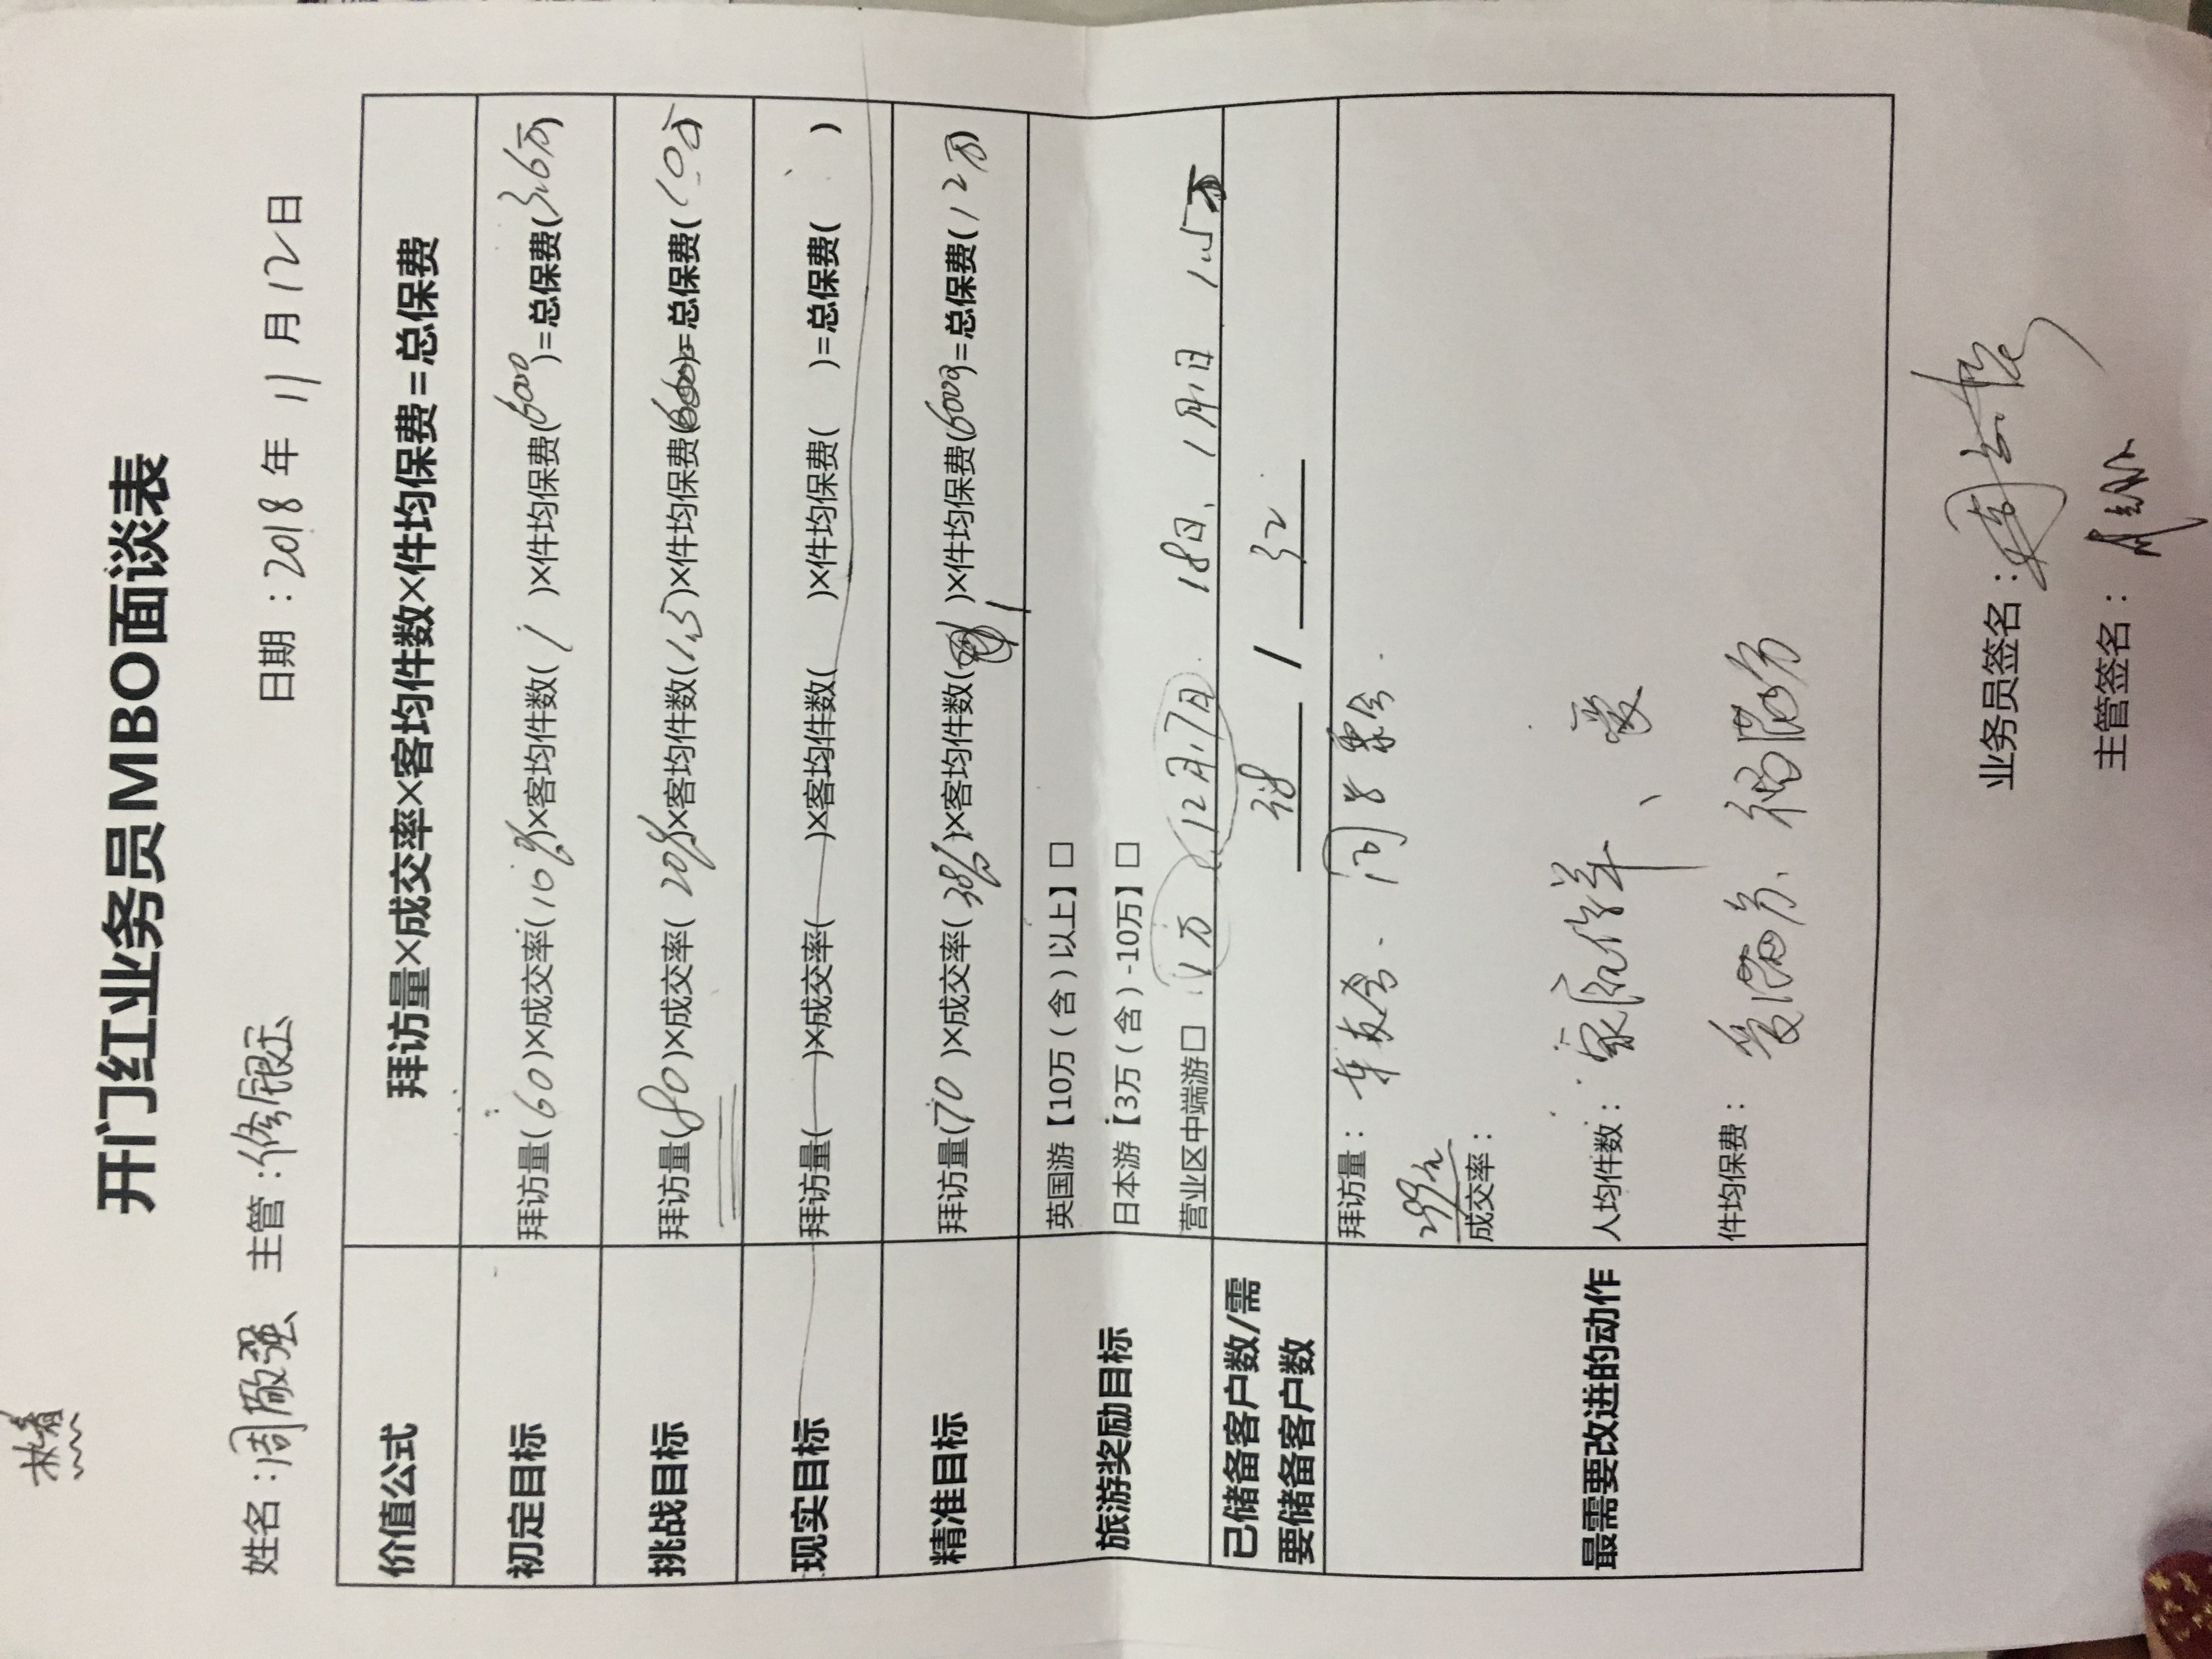 开门红业务员MBO面谈表
姓名：周敬强 主管：修银玉 日期：2018年11月12日
价值公式 拜访量×成交率×客均件数×件均保费=总保费
初定目标 拜访量(60)×成交率(10%)×客均件数(1)×件均保费(6000)=总保费(3.6万)
挑战目标 拜访量(80)×成交率(20%)×客均件数(1.5)×件均保费( )=总保费(10万)
现实目标 拜访量( )×成交率( )×客均件数( )×件均保费( )=总保费( )
精准目标 拜访量(70)×成交率(38%)×客均件数(1)×件均保费(6000)=总保费(12万)
旅游奖励目标
英国游【10万（含）以上】□
日本游【3万（含）-10万】□
营业区中端游□ 1万 (12月.7月. 18日、1月1日 1.5万
已储备客户数/需要储备客户数 38 / 32
最需要改进的动作
拜访量：车友会、同学聚会.
299元
成交率：
人均件数：家庭作业、爱
件均保费：爱满分、福满分
业务员签名：
主管签名：